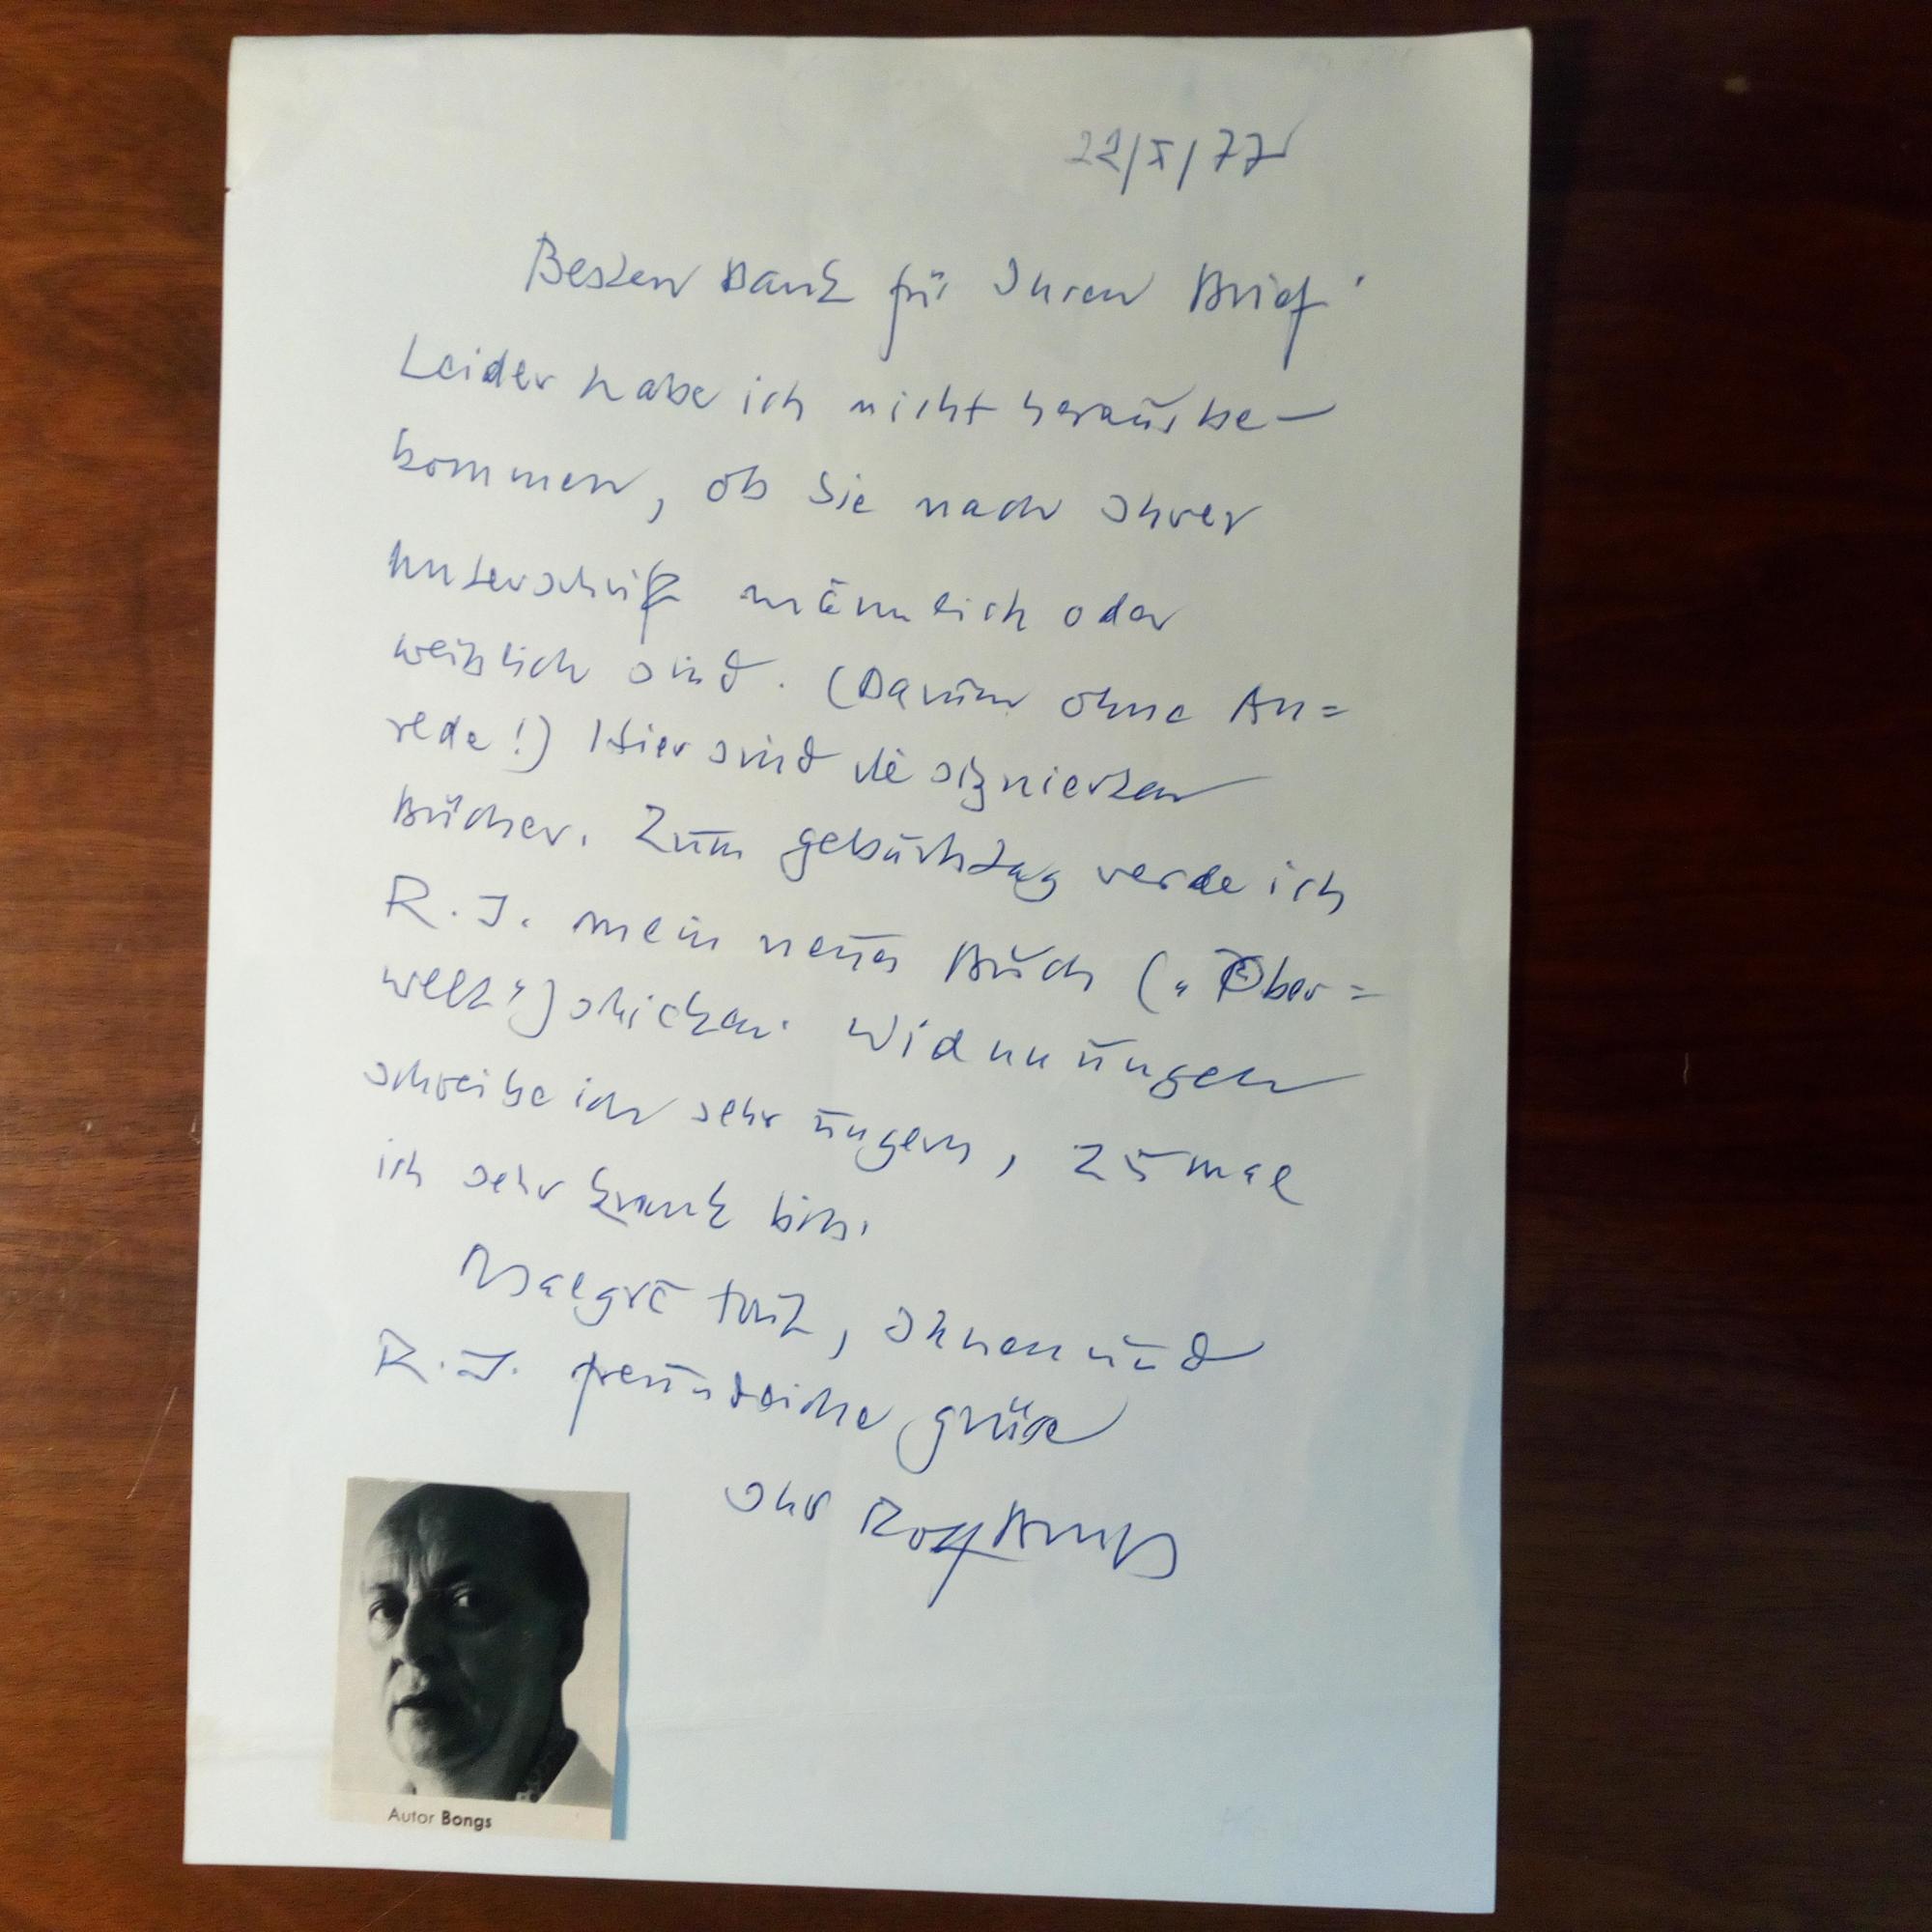 22/X/77
Besten Dank für Ihren Brief.
Leider habe ich nicht herausbe-
kommen, ob Sie nach Ihrer
Unterschrift männlich oder
weiblich sind. (Darum ohne An=
rede!) Hier sind die signierten
Bücher. Zum geburtstag werde ich
R. J. mein neues Buch („Ober=
welt") schicken. Widmungen
schreibe ich sehr ungern, zumal
ich sehr krank bin.
Malgré tout, Ihnen und
R. J. freundliche grüße
Ihr Rolf Bongs
Autor Bongs